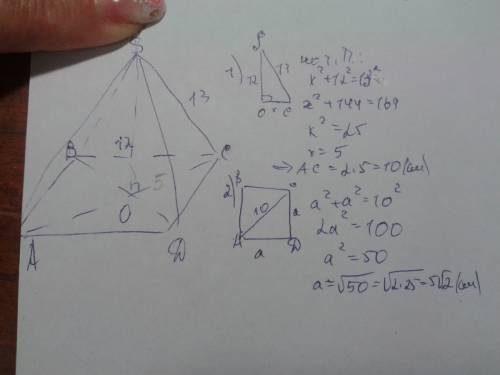 S
13
B
12
C
h
5
O
A
D
1)
S
12
13
O
x
C
по т. П.:
x²+12²=13²
x²+144=169
x²=25
x=5
=> AC = 2·5=10(см)
2)
B
C
10
a
A
D
a
a²+a²=10²
2a²=100
a²=50
a=√50=√2·25=5√2(см)